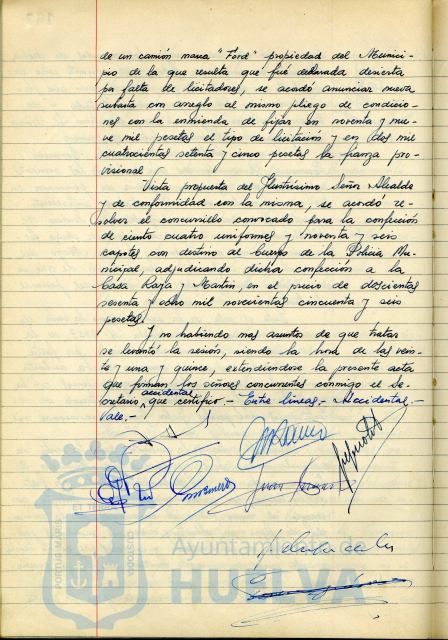 de un camión marca "Ford" propiedad del Munici-
pio de la que resulta que fué declarada desierta
por falta de licitadores, se acordó anunciar nueva
subasta con arreglo al mismo pliego de condicio-
nes con la enmienda de fijar en noventa y nue-
ve mil pesetas el tipo de licitación y en dos mil
cuatrocientas setenta y cinco pesetas la fianza pro-
visional
Vista propuesta del Ilustrísimo Señor Alcalde
y de conformidad con la misma, se acordó re-
solver el concursillo convocado para la confección
de ciento cuatro uniformes y noventa y seis
capotes con destino al Cuerpo de la Policía Mu-
nicipal, adjudicando dicha confección a la
Casa Raja y Martín, en el precio de doscientas
sesenta y ocho mil novecientas cincuenta y seis
pesetas.
Y no habiendo mas asuntos de que tratar
se levantó la sesión, siendo la hora de las vein-
te y una y quince, extendiéndose la presente acta
que firman los señores concurrentes conmigo el Se-
accidental
cretario que certifico.- Entre lineas.- Accidental.-
Vale.-
Ayuntamiento de
HUELVA
PORTUS MARIS
CUSTODIA